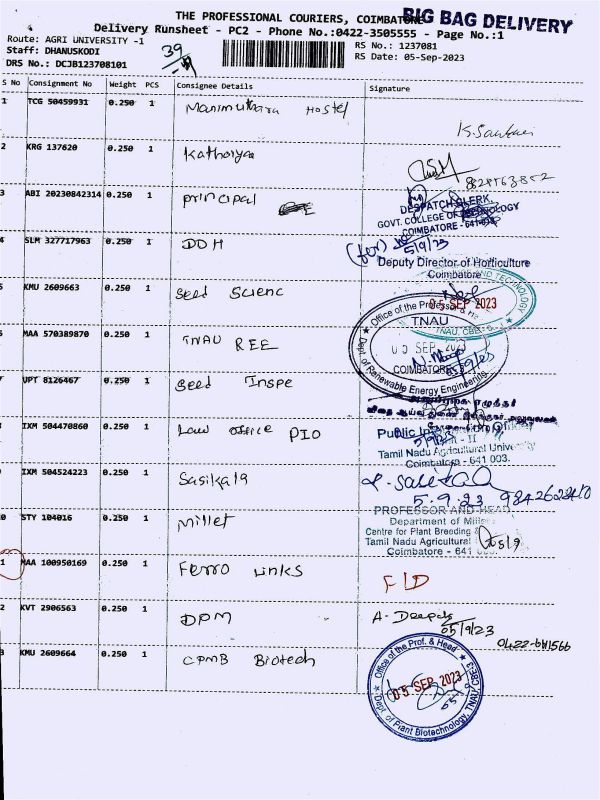 THE PROFESSIONAL COURIERS, COIMBATORE
BIG BAG DELIVERY
Delivery Runsheet - PC2 - Phone No.:0422-3505555 - Page No.:1
Route: AGRI UNIVERSITY -1
39
RS No.: 1237081
Staff: DHANUSKODI
RS Date: 05-Sep-2023
DRS No.: DCJB123708101
S No Consignment No Weight PCS Consignee Details Signature
1 TCG 50459931 0.250 1 Hostel
K. Sankari
2 KRG 137620 0.250 1 Kathoiya
3 ABI 20230842314 0.250 1 principal
DESPATCH CLERK
GOVT. COLLEGE OF TECHNOLOGY
COIMBATORE - 641
4 SLM 327717963 0.250 1 DDH
(for) 5/9/23
Deputy Director of Horticulture
Coimbatore
5 KMU 2609663 0.250 1 Seed Scienc
05 SEP 2023
TNAU, CBE
6 MAA 570389870 0.250 1 TNAU REE
Office of the Professor &
TNAU
05 SEP 2023
COIMBATORE
Dept. of Renewable Energy Engineering
7 UPT 8126467 0.250 1 Seed Inspe
8 IXM 504470860 0.250 1 Law office PIO
Public Information Officer
- II
Tamil Nadu Agricultural University
Coimbatore - 641 003.
9 IXM 504524223 0.250 1 Sasikala
5.9.23 9842622410
10 STY 104016 0.250 1 Millet
PROFESSOR AND HEAD
Department of Millets
Centre for Plant Breeding &
Tamil Nadu Agricultural
5/9
Coimbatore - 641
11 MAA 100950169 0.250 1 Ferro Links
F/D
12 KVT 2906563 0.250 1 DPM
A. Deepa
05/9/23
13 KMU 2609664 0.250 1 CPMB Biotech
Office of the Prof. & Head
05 SEP 2023
Dept. of Plant Biotechnology, TNAU, CBE-3